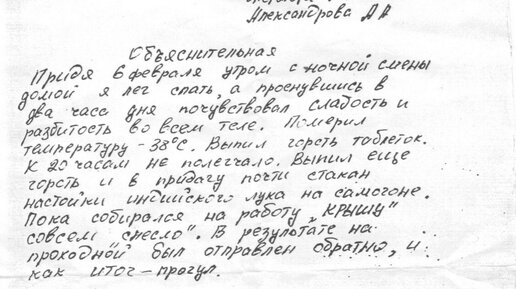 Александрова АА
Объяснительная
Придя 6 февраля утром с ночной смены
домой я лег спать, а проснувшись в
два часа дня почувствовал слабость и
разбитость во всем теле. Померил
температуру - 38°С. Выпил горсть таблеток.
К 20 часам не полегчало. Выпил еще
горсть и в придачу почти стакан
настойки индийского лука на самогоне.
Пока собирался на работу „крышу"
совсем снесло". В результате на
проходной был отправлен обратно, и
как итог - прогул.